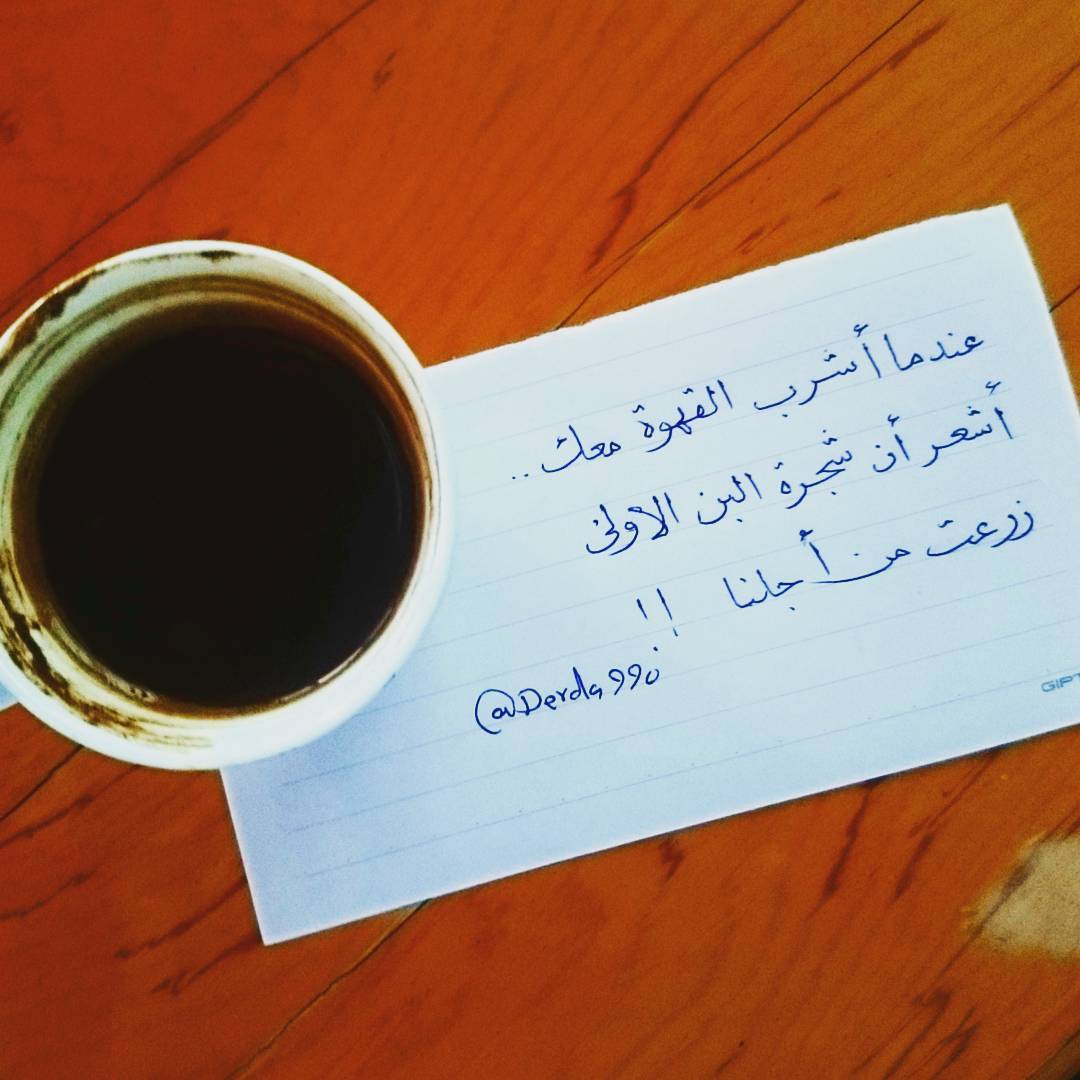 عندما أشرب القهوة معك..
أشعر أن شجرة البن الأولى
زرعت من أجلنا !!
@Derda99
GIPT